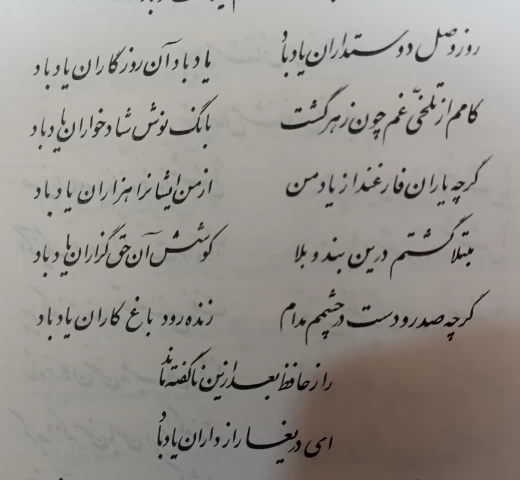 روز وصل دوستداران یاد باد یاد باد آن روزگاران یاد باد
کامم از تلخیّ غم چون زهر گشت بانگ نوش شادخواران یاد باد
گرچه یاران فارغند از یاد من از من ایشانرا هزاران یاد باد
مبتلا گشتم درین بند و بلا کوشش آن حق گزاران یاد باد
گرچه صد رودست در چشمم مدام زنده رود باغ کاران یاد باد
راز حافظ بعد ازین ناگفته ماند
ای دریغا رازداران یاد باد